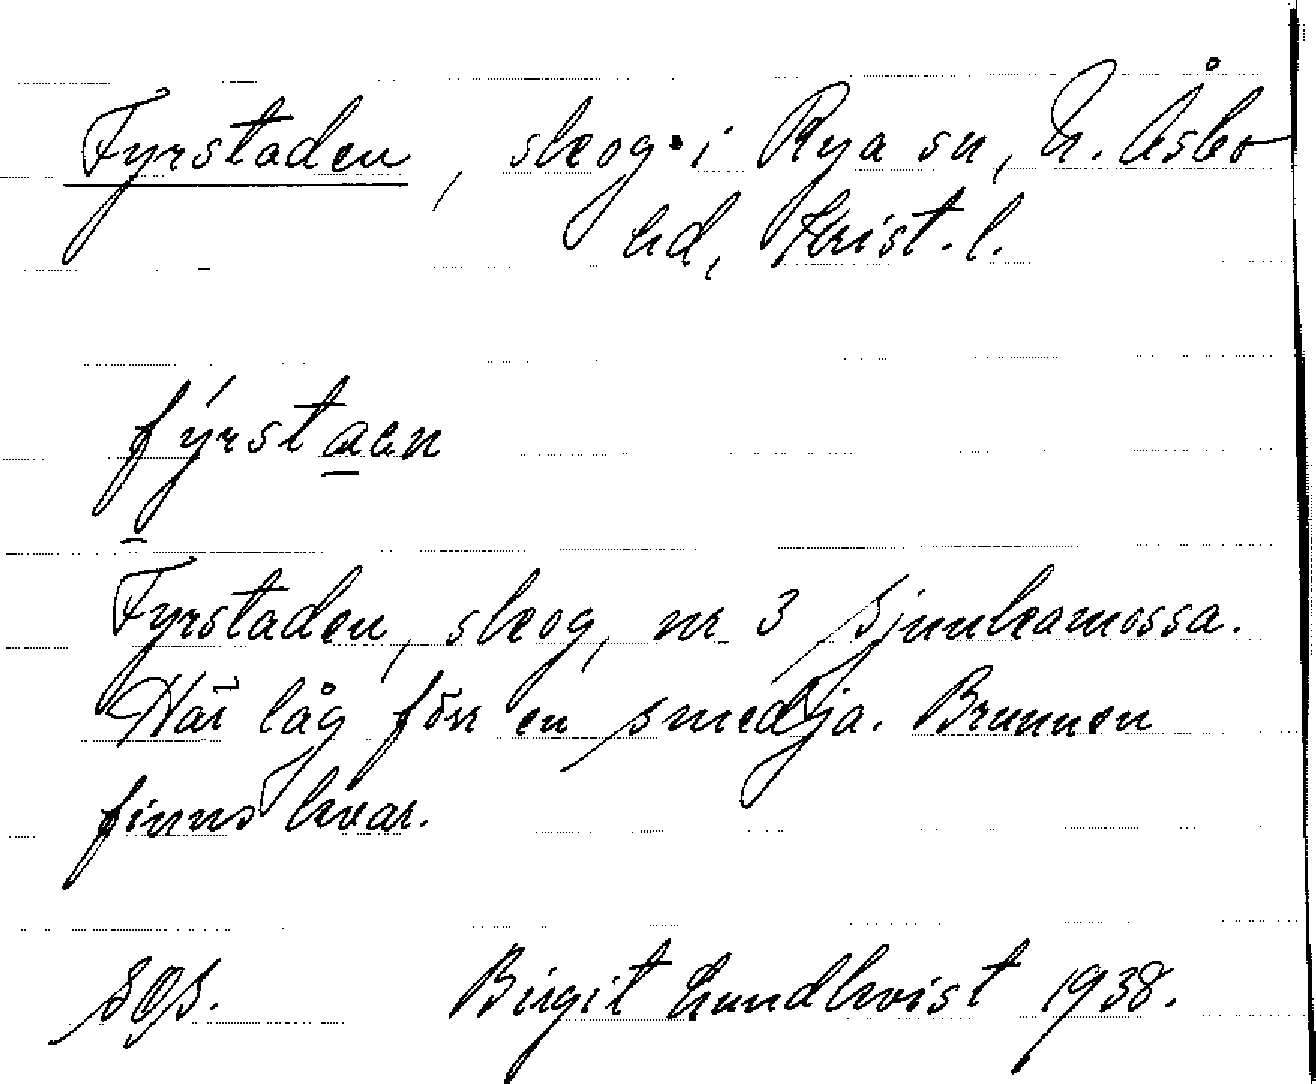 Fyrstaden, skog i Rya sn, N. Åsbo
hd, Krist. l.
fýrstaen
Fyrstaden, skog, nr 3 Sjunkamossa.
Här låg förr en smedja. Brunnen
finns kvar.
Birgit Lundkvist 1938.